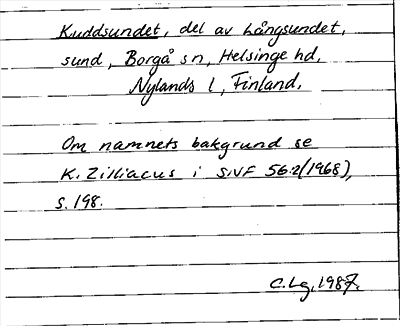 Kuddsundet, del av Långsundet,
sund, Borgå sn, Helsinge hd,
Nylands l, Finland.
Om namnets bakgrund se
K. Zilliacus i SNF 56:2(1968),
s. 198.
C. Lg. 1987.